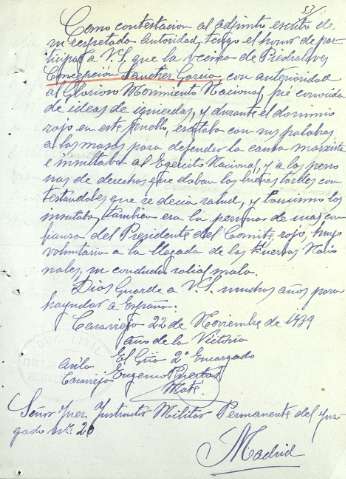 Como contestación al adjunto escrito de
su respetada Autoridad, tengo el honor de par-
ticipar a V.S. que la vecina de Piedralaves
Concepción Sanchez Garcia, con anterioridad
al Glorioso Movimiento Nacional, fué conocida
de ideas de izquierdas, y durante el dominio
rojo en este pueblo, exitaba con sus palabras
a las masas para defender la causa marxista
e insultaba al Ejercito Nacional, y a las perso
nas de derechas que daban los buenas tardes con
testandoles que se decia salud, y tambien los
insultaba, tambien era la persona de mas con
fianza del Presidente del Comité rojo, huyo
voluntaria a la llegada de las Fuerzas Nacio
nales, su conducta mala.
Dios guarde a V.S. muchos años para
hayudar a España.
Casavieja 22 de Noviembre de 1939
Año de la Victoria
El Gria 2º Encargado
Avila
Casavieja Eugenio
Señor Juez Instructor Militar Permanente del Juz-
gado Nº 20
Madrid